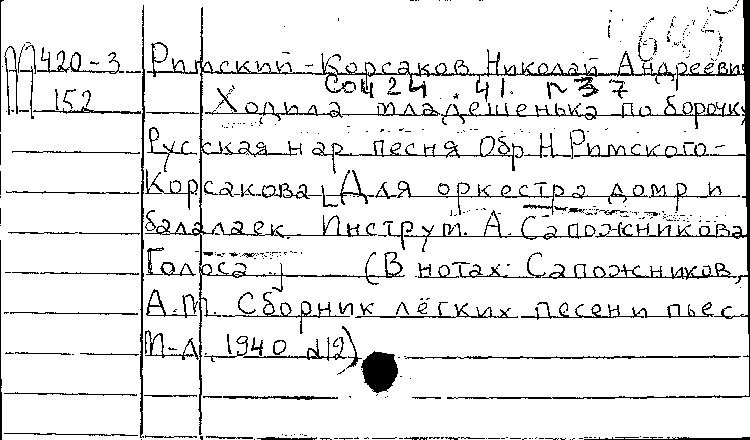 645
М 420-3 Римский-Корсаков Николай Андреевич
Соч 24 . 41. № 37
152 Ходила младёшенька по борочку
Русская нар. песня Обр. Н. Римского-
Корсакова [Для оркестра домр и
балалаек. Инструм. А. Сапожникова
Голоса] (В нотах: Сапожников,
А.Т. Сборник лёгких песен и пьес
М-Л, 1940 №12)